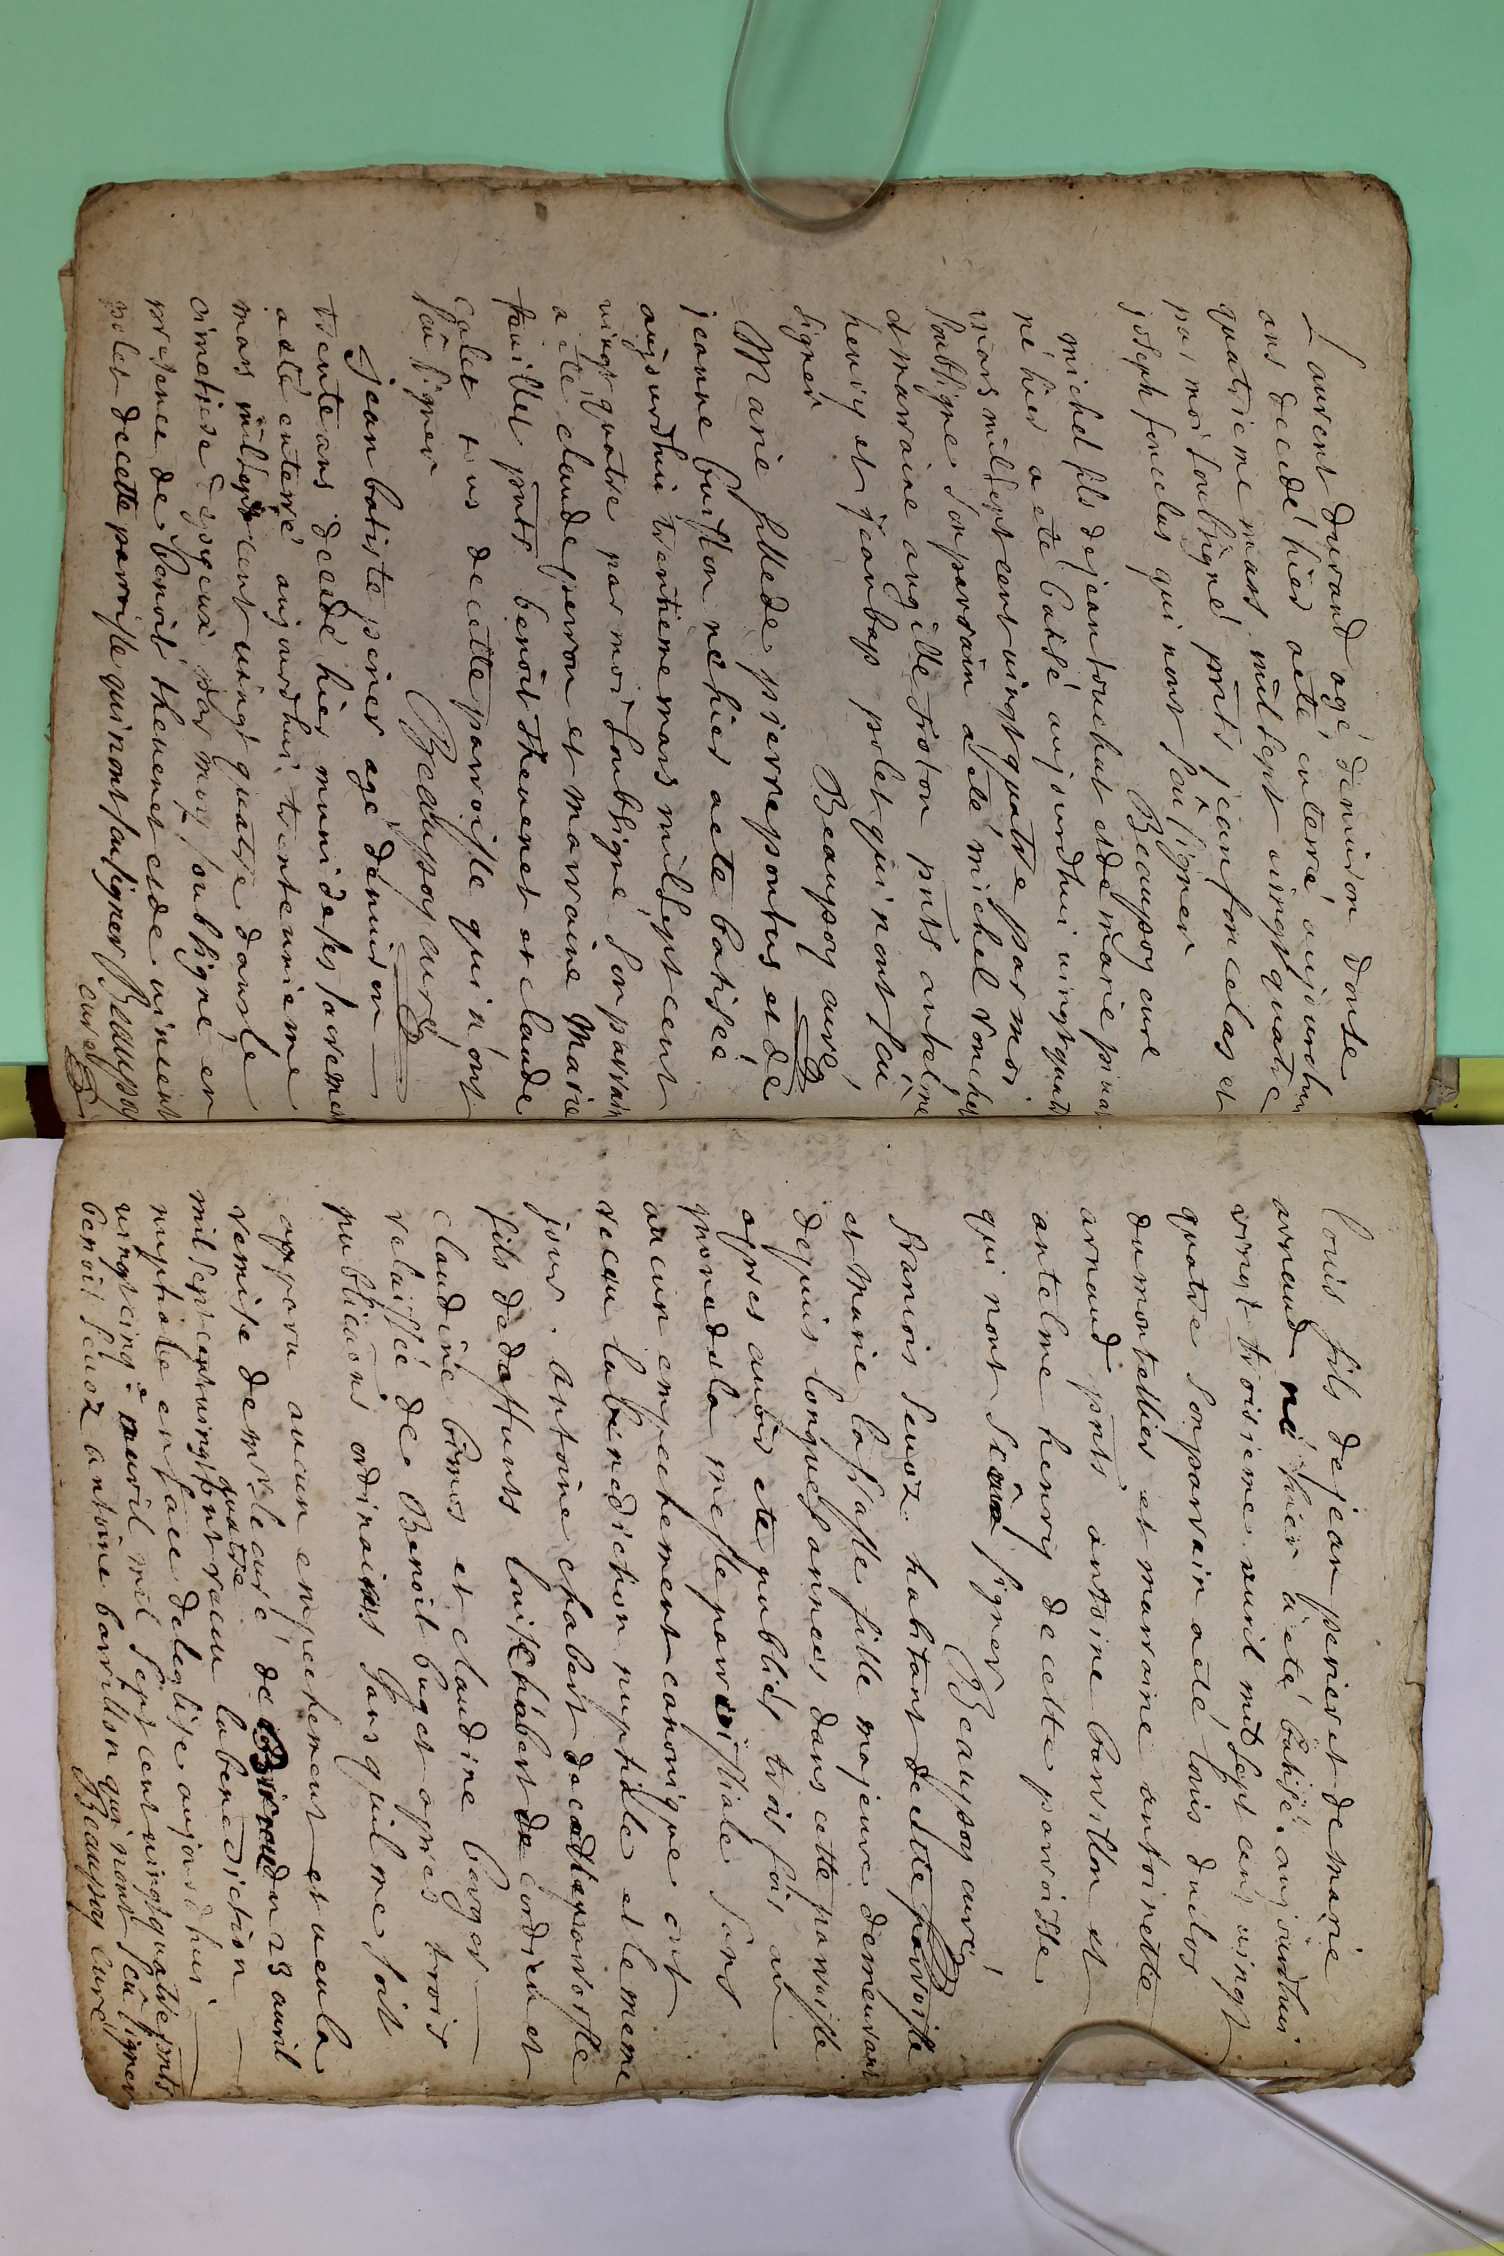 Laurent durand agé denviron douse
ans decedé hier aeté enterré aujourdhui
quatrieme mars mil sept vingt quatre
par moi soubsigné pnts jean foncelas et
joseph foncelas qui nont sçû signer
Beaupoy curé
michel fils dejean touchat et de marie
né hier a eté batisé aujourdhui vingt quatre
mars mil sept cent vingt quatre par moi
soubsigne son parrain a eté michel
et marraine pnts antelme
henry et jean bap polet qui nont sçû
signer
Beaupoy curé
Marie fille de pierre pontus et de
jeanne buisson née hier aeté batisée
aujourdhui trentieme mars mil sept cent
vingt quatre par moi soubsigné son parrain
a eté claude perron et marraine Marie
pnts benoit Thevenet et claude
colet tous de cette parroisse qui nont
sçû signer
Beaupoy curé
Jean batiste perier agé denviron
trente ans decedé hier muni de ses sacremen
aeté enterré aujourdhui trente unieme
mars mil sept cent vingt quatre dans le
cimetiere par moy soubsigné en
presence de benoit thevenet et de vincent
polet de cette parroisse qui nont sçu signer Beaupoy
curé
louis fils dejean perier et de marie
arnaud né hier a eté batisé aujourdhui
vingt troisieme avril mil sept cent vingt
quatre son parrain a eté louis duclos
dumontellier et marraine antoinette
arnaud pnts antoine barillon et
antelme henry de cette paroisse
qui nont sçû signer
Beaupoy curé
francois sevoz habitant de cette parroisse
et marie lassasle fille majeure demeurant
depuis longues annees dans cette parroisse
apres avoir ete publiés trois fois au
prone de la messe parroissiale sans
aucun empechement canonique ont
recu la benediction nuptiale et le meme
jour antoine chabert de cette parroisse
fils de deffunts louis chabert de cordieu et
claudine et claudine barger
relaissée de Benoit buget apres trois
publicaons ordinaires sans quil me soit
apparu aucun empechement et veu la
remise de mr le curé de du 23 avril
mil sept cent vingt quatre ont recu la benediction
nuptiale en face de leglise aujourdhui
vingt cinq avril mil sept cent vingt quatre pnts
benoit sevoz antoine barillon qui nont sçû signer
Beaupoy curé